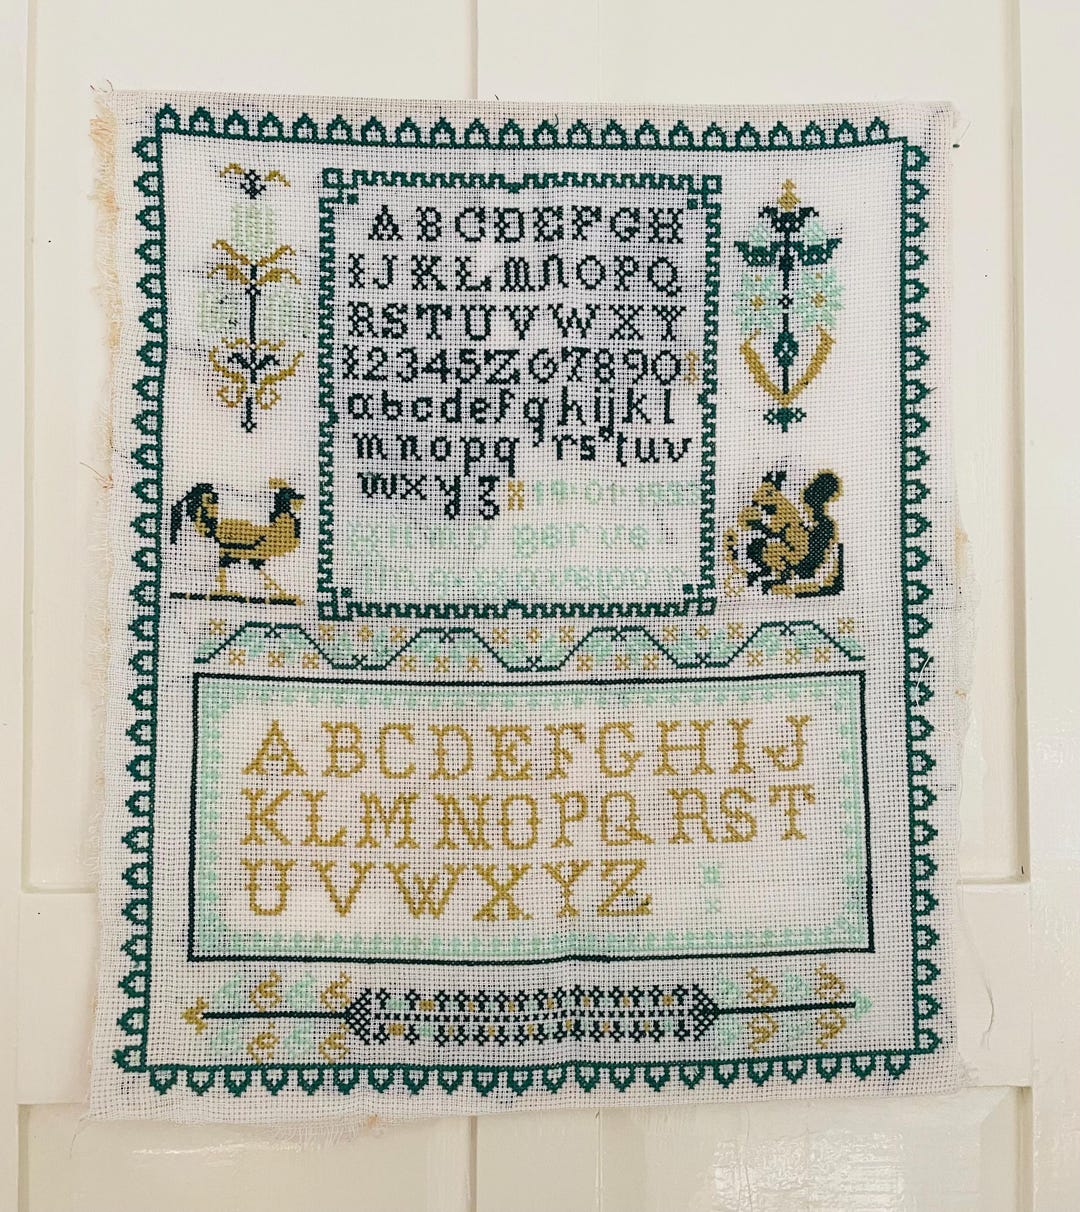 ABCDEFGH
IJKLmnOPQ
RSTUVWXY
12345Z67890
abcdefghijkl
mnopq rstuv
wxyz
ABCDEFGHIJ
KLMNOPQRST
UVWXYZ